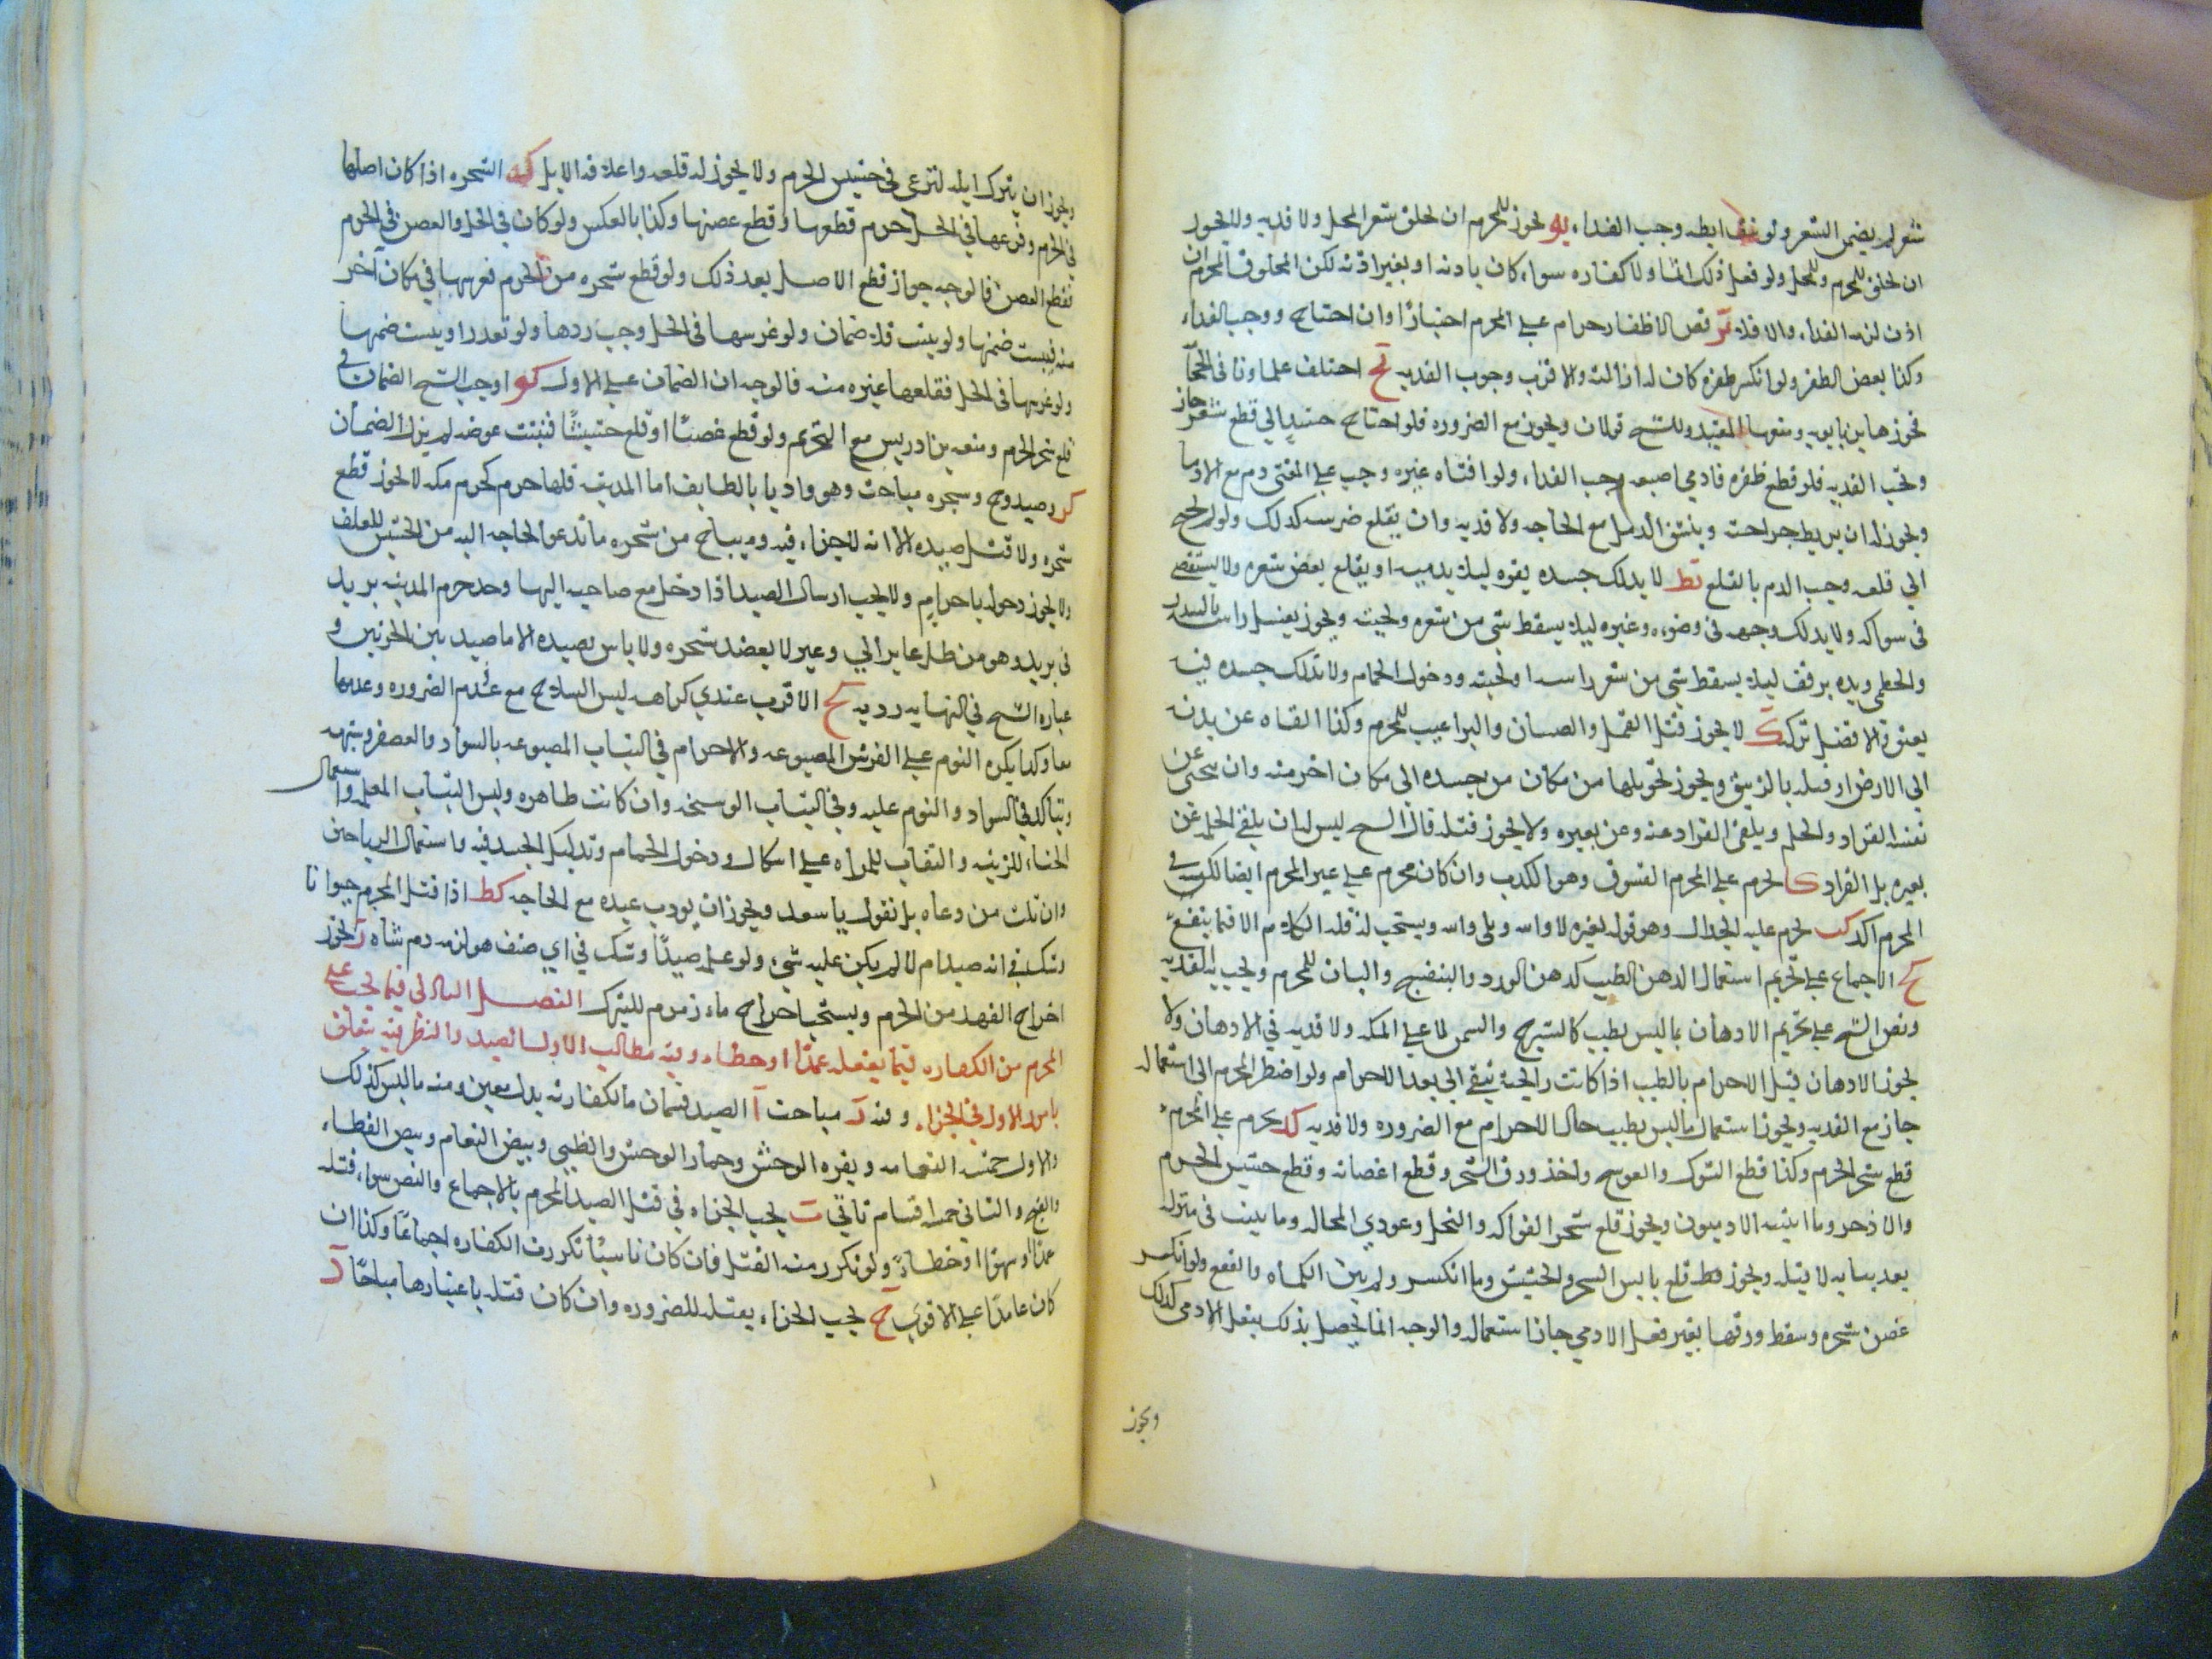 شعر لم يضمن الشعر ولو نتف ابطه وجب الفداء يو يجوز للمحرم ان يحلق شعر المحل ولا فديه ولا يجوز
ان يحلق للمحرم وللمحل ولو فعل ذلك اثما ولا كفاره سواء كان باذنه او بغير اذنه لكن المحلوق المحرم ان
اذن لزمه الفداء والا فلا يز قص الاظفار حرام علي المحرم اختيارًا وان احتاج ووجب الفداء
وكذا بعض الظفر ولو انكسر ظفره كان له ازالته والاقرب وجوب الفديه يح اختلف علماونا في الحجامه
فجوزها بن بابويه ومنعها المفيد وللشيخ قولان ويجوز مع الضروره فلو احتاج حينيذٍ الي قطع شعر جاز
وتجب الفديه فلو قطع ظفره فادمي اصبعه وجب الفداء ولو افتاه غيره وجب علي المفتي دم مع الادما
ويجوز له ان يربط جراحته ويشق الدمل مع الحاجه ولا فديه وان يقلع ضرسه كذلك ولو لم يحتج
الي قلعه وجب الدم بالقلع يط لا يدلك جسده بقوه ليلا يدميه او يقلع بعض شعره ولا يستقصي
في سواكه ولا يدلك وجهه في وضوءه وغيره ليلا يسقط شي من شعره ولحيته ويجوز يغسل راسه بالسدر
والخطمي ويده برفق ليلا يسقط شي من شعر راسه او لحيته ودخول الحمام ولا يدلك جسده فيه
بعنف والافضل تركه ك لا يجوز قتل القمل والصبيان والبراغيث للمحرم وكذا القاه عن بدنه
الي الارض او قتله بالزيبق ويجوز تحويلها من مكان من جسده الي مكان اخر منه وان ينحي عن
نفسه القراد والحلم ويلقي القراد عنه وعن بعيره ولا يجوز قتله قال الشيخ ليس له ان يلقي الحلم عن
بعيره بل القراد كا يحرم علي المحرم الفسوق وهو الكذب وان كان محرم علي غير المحرم ايضا لكن في
المحرم اكد كب يحرم عليه الجدال وهو قوله لغيره لا والله وبلي والله ويستحب له قله الكلام الا فيما ينفع
كج الاجماع علي تحريم استعمال الدهن الطيب كدهن الورد والبنفسج والبان للمحرم ويجب به الفديه
ونص الشيخ علي تحريم الادهان بما ليس بطيب كالشيرج والسمن لا علي اكله ولا فديه في الادهان ولا
يجوز الادهان قبل الاحرام بالطيب اذا كانت رايحته تبقي الي بعد الاحرام ولو اضطر المحرم الي استعماله
جاز مع الفديه ويجوز استعمال ما ليس بطيب حال الاحرام مع الضروره ولا فديه كد يحرم علي المحرم
قطع شجر الحرم وكذا قطع الشوك والعوسج واخذ ورق الشجر وقطع اغصانه وقطع حشيش الحرم
والاذخر وما انبته الادميون ويجوز قلع شجر الفواكه والنخل وعودي المحاله وما ينبت في منزله
بعد بنايه لا قبله ويجوز قلع يابس الشجر والحشيش وما انكسر ولم يبن الكماه والفقع ولو انكسر
غصن شجره وسقط ورقها بغير فعل الادمي جاز استعماله والوجه انما يحصل بذلك بفعل الادمي كذلك
ويجوز
ويجوز ان يترك ابله لترعي في حشيش الحرم ولا يجوز له قلعه واعلافه الابل كه الشجره اذا كان اصلها
في الحرم وفرعها في الحل حرم قطعها وقطع غصنها وكذا بالعكس ولو كان في الحل والغصن في الحرم
فقطع الغصن فالوجه جواز قطع الاصل بعد ذلك ولو قطع شجره من الحرم فغرسها في مكان آخر
منه فيبست ضمنها ولو نبتت فلا ضمان ولو غرسها في الحل وجب ردها ولو تعذر او يبست ضمنها
ولو غرسها في الحل فقلعها غيره منه فالوجه ان الضمان علي الاول كو اوجب الشيخ الضمان في
قلع شجر الحرم ومنعه بن ادريس مع التحريم ولو قطع غصنًا او قلع حشيشًا فنبتت عوضه لم يزل الضمان
كز وصيد وج وشجره مباحث وهو وادٍ بالطايف اما المدينه فلها حرم كحرم مكه لا يجوز قطع
شجره ولا قتل صيده الا انه لا جزاء فيه ويباح من شجره ما تدعو الحاجه اليه من الحشيش للعلف
ولا يجوز دخوله باحرامٍ ولا يجب ارسال الصيد اذا دخل مع صاحبه اليها وحد حرم المدينه بريد
في بريد وهو من ظل عاير الي وعير لا يعضد شجره ولا باس بصيده الا ما صيد بين الحرتين و
عباره الشيخ في النهايه رديه كح الاقرب عندي كراهه لبس السلاح مع عدم الضروره وعدمها
معا وكذا يكره النوم علي الفرش المصبوغه والاحرام في الثياب المصبوغه بالسواد والعصفر وشبهه
ويتاكد في السواد والنوم عليه وفي الثياب الوسخه وان كانت طاهره ولبس الثياب المعلمه واستعمال
الحناء للزينه والنقاب للمراه علي اشكال ودخول الحمام وتدليك الجسد فيه واستعمال الرياحين
وان تلبي من دعاه بل نقول يا سعد ويجوز ان يودب عبده مع الحاجه كط اذا قتل المحرم حيوانا
وشك في انه صيد ام لا لم يكن عليه شي ولو علمه صيدًا وشك في اي صنف هو لزمه دم شاه ل يجوز
اخراج الفهد من الحرم ويستحب اخراج ماء زمزم للتبرك الفصل الثاني فيما يجب علي
المحرم من الكفاره فيما يفعله عمدًا او خطاء وفيه مطالب الاول الصيد والنظر فيه يتعلق
بامور الاول في الجزاء وفيه مباحث ا الصيد قسمان ما لكفارته بدل معين ومنه ما ليس كذلك
والاول خمسه النعامه وبقره الوحش وحمار الوحش والظبي وبيض النعام وبيض القطاء
والقبج والثاني خمسه اقسام تاتي ب يجب الجزاء في قتل الصيد المحرم بالاجماع والنص سواء قتله
عمدًا او سهوًا او خطاءً ولو تكرر منه القتل فان كان ناسيًا تكررت الكفاره اجماعًا وكذا ان
كان عامدًا علي الاقوي ج يجب الجزاء بقتله للضروره وان كان قتله باعتبارها مباحًا د